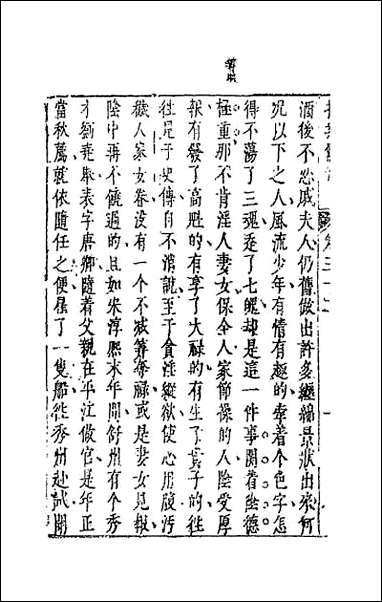 拍案驚奇 卷三十二 一
酒後不忍戚夫人仍舊做出許多纏綿景狀出來何
况以下之人風流少年有情有趣的牽着個色字怎
得不蕩了三魂走了七魄却是這一件事關着陰德
極重那不肯淫人妻女保全人家節操的人陰受厚
報有發了高魁的有享了大祿的有生了貴子的往
往見于史傳自不消說至于貪淫縱慾使心用腹污
穢人家女眷沒有一個不減算奪祿或是妻女見報
陰中再不饒過的且如宋淳熙末年間舒州有個秀
才劉堯舉表字唐卿隨着父親在平江做官是年正
當秋薦就依隨任之便雇了一隻船往秀州赴試開